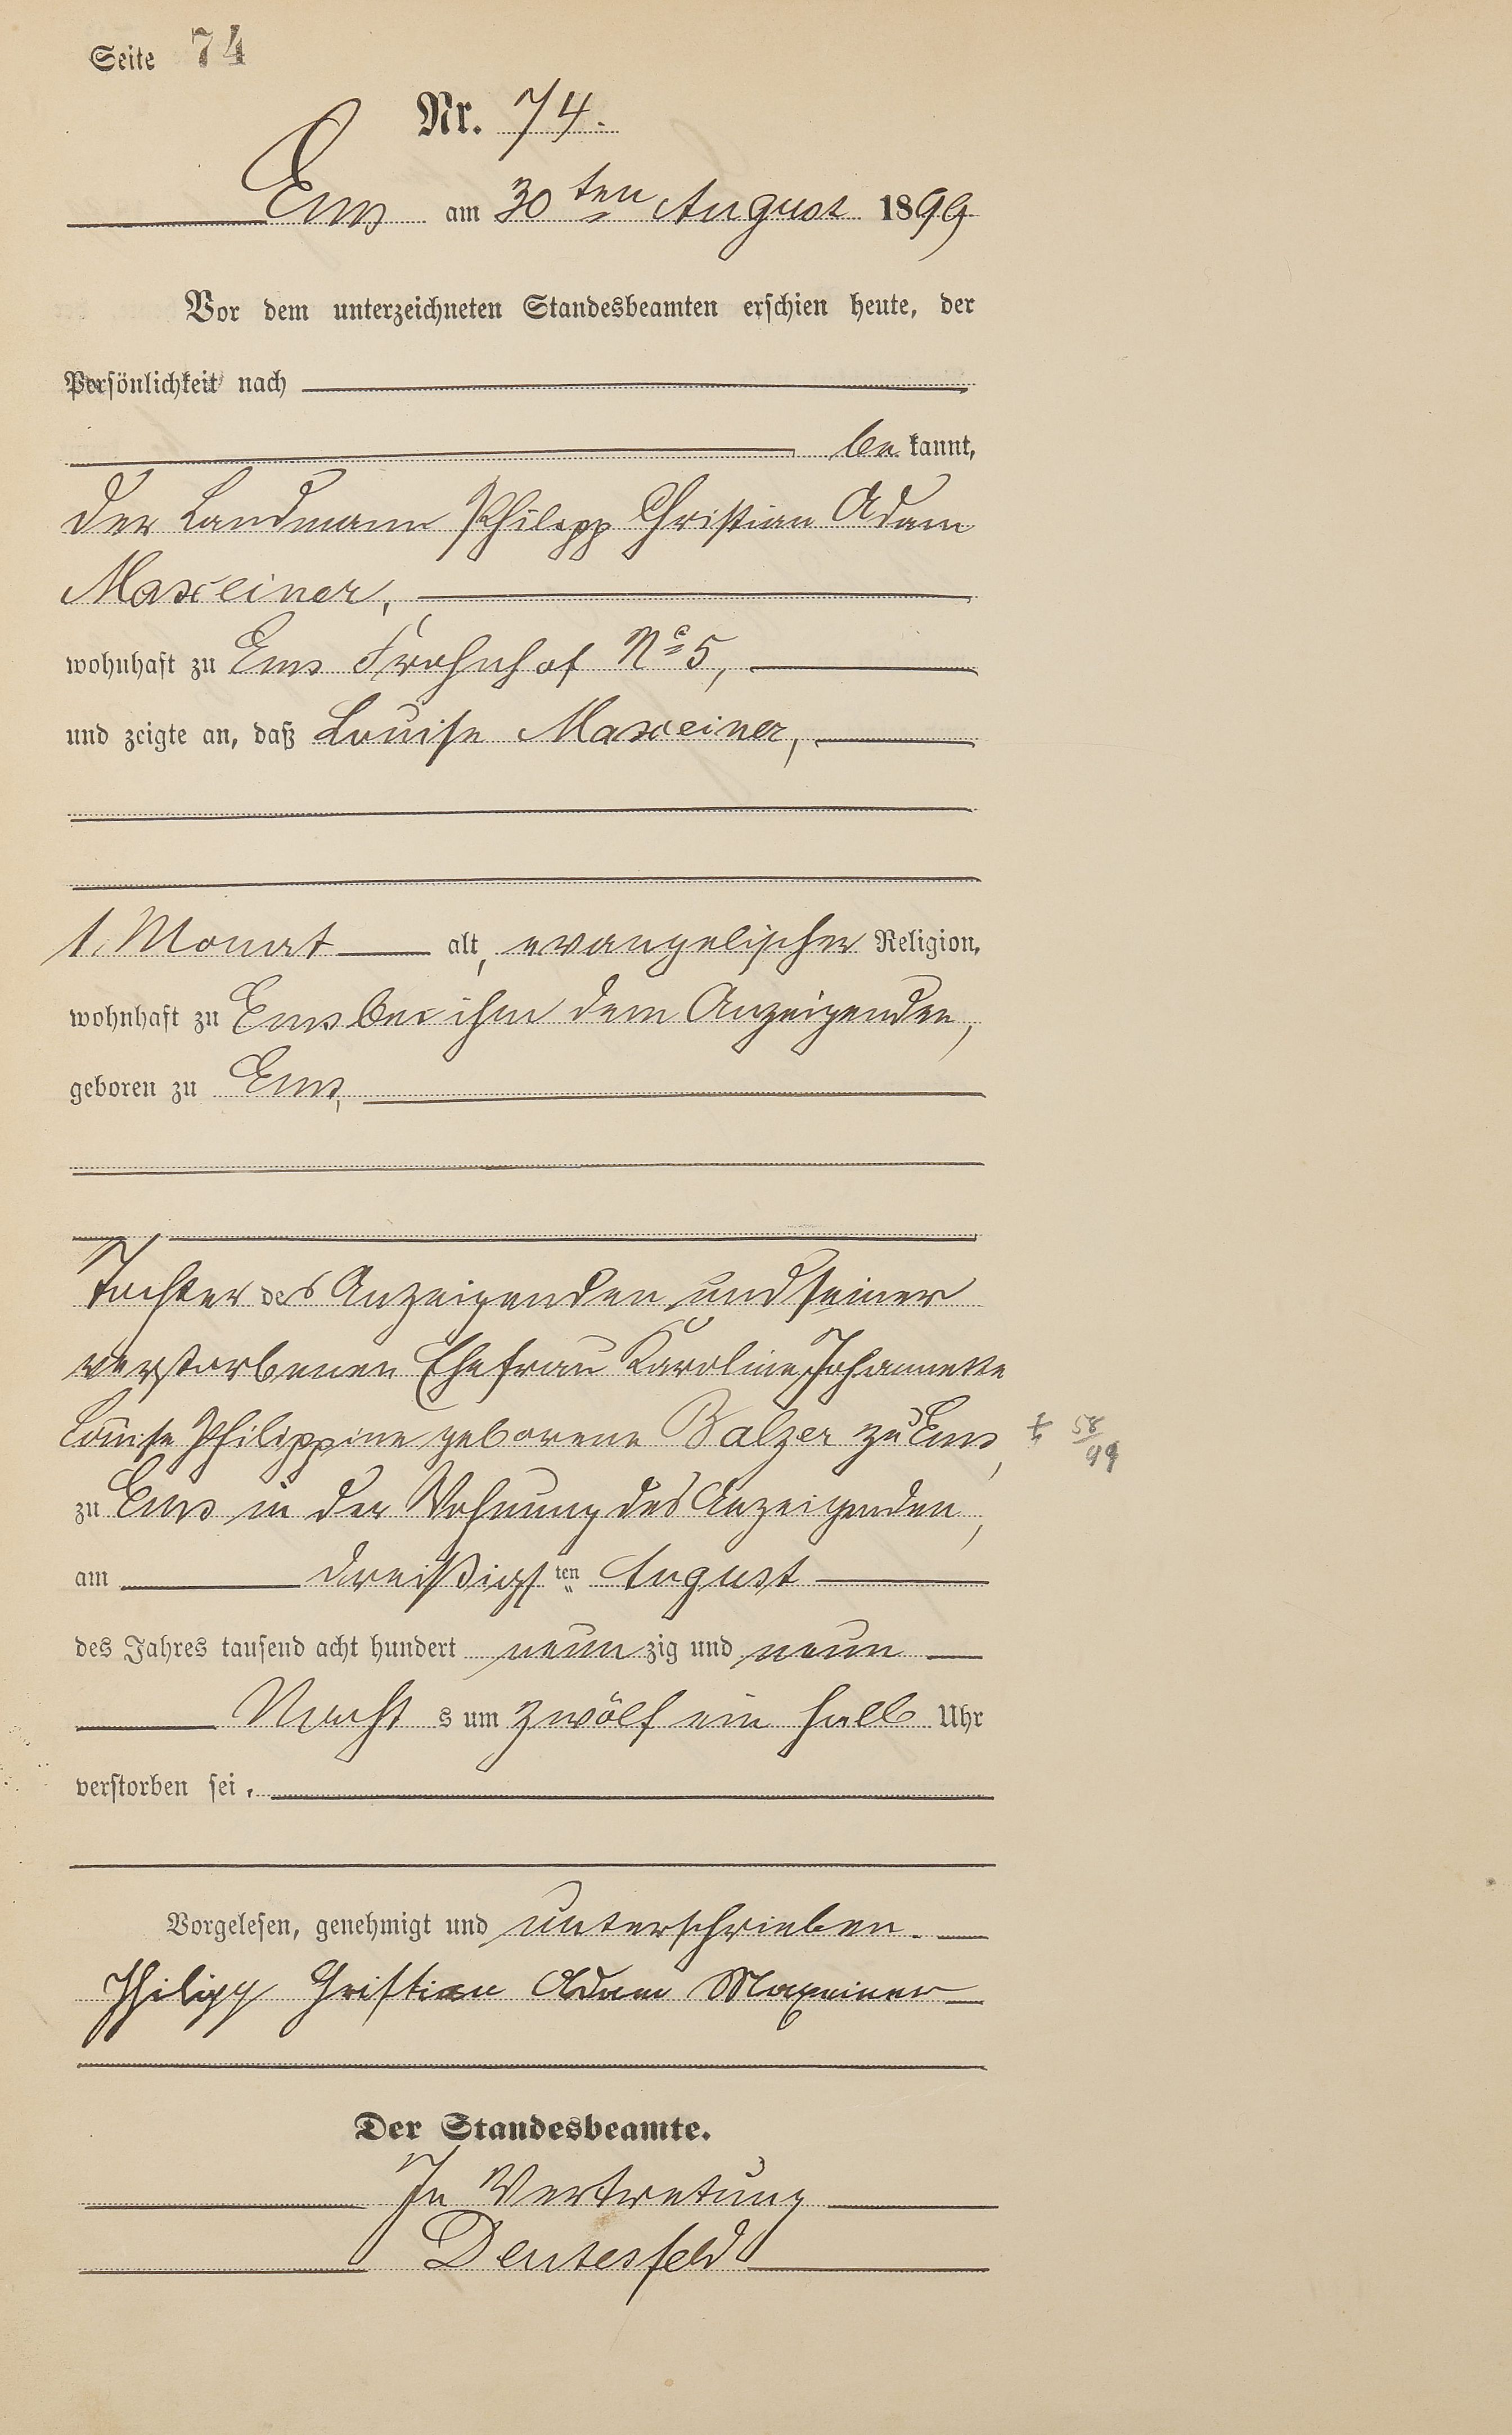 Seite 74
Nr. 74.
Ems am 30ten August 1899
Vor dem unterzeichneten Standesbeamten erschien heute, der
Persönlichkeit nach
be kannt,
der Landmann Philipp Christian Adam
Maxeiner,
wohnhaft zu Ems Frohnhof No 5,
und zeigte an, daß Louise Maxeiner,
1. Monat alt, evangelischer Religion,
wohnhaft zu Ems bei ihm dem Anzeigenden,
geboren zu Ems,
Tochter des Anzeigenden und seiner
verstorbenen Ehefrau Karoline Johannette
Louise Philippine geborene Balzer zu Ems, † 58/99
zu Ems in der Wohnung des Anzeigenden,
am dreißigsten August
des Jahres tausend acht hundert neunzig und neun
Nachts um zwölf ein halb Uhr
verstorben sei.
Vorgelesen, genehmigt und unterschrieben.
Philipp Christian Adam Maxeiner
Der Standesbeamte.
In Vertretung
Deutesfeld